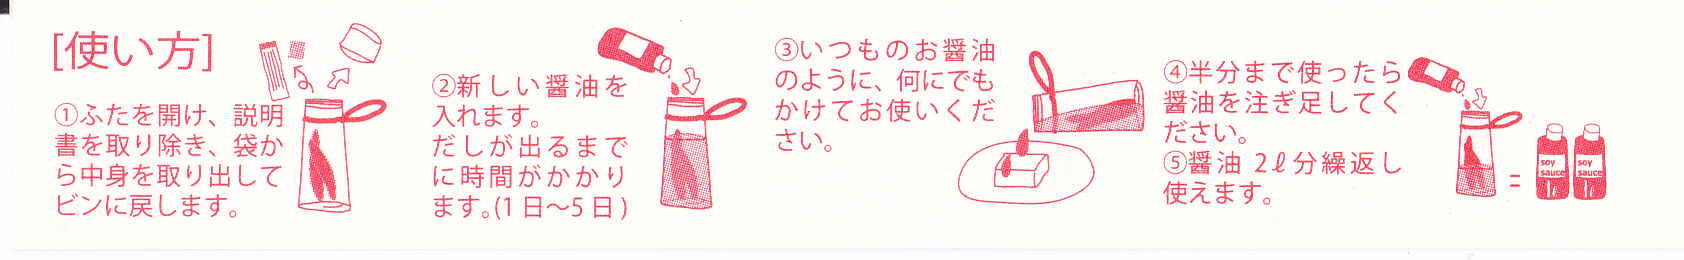 [使い方]
①ふたを開け、説明
書を取り除き、袋か
ら中身を取り出して
ビンに戻します。
②新しい醤油を
入れます。
だしが出るまで
に時間がかかり
ます。(1日～5日)
③いつものお醤油
のように、何にでも
かけてお使いくだ
さい。
④半分まで使ったら
醤油を注ぎ足してく
ださい。
⑤醤油 2ℓ分繰返し
使えます。
=
soy
sauce
1ℓ
soy
sauce
1ℓ